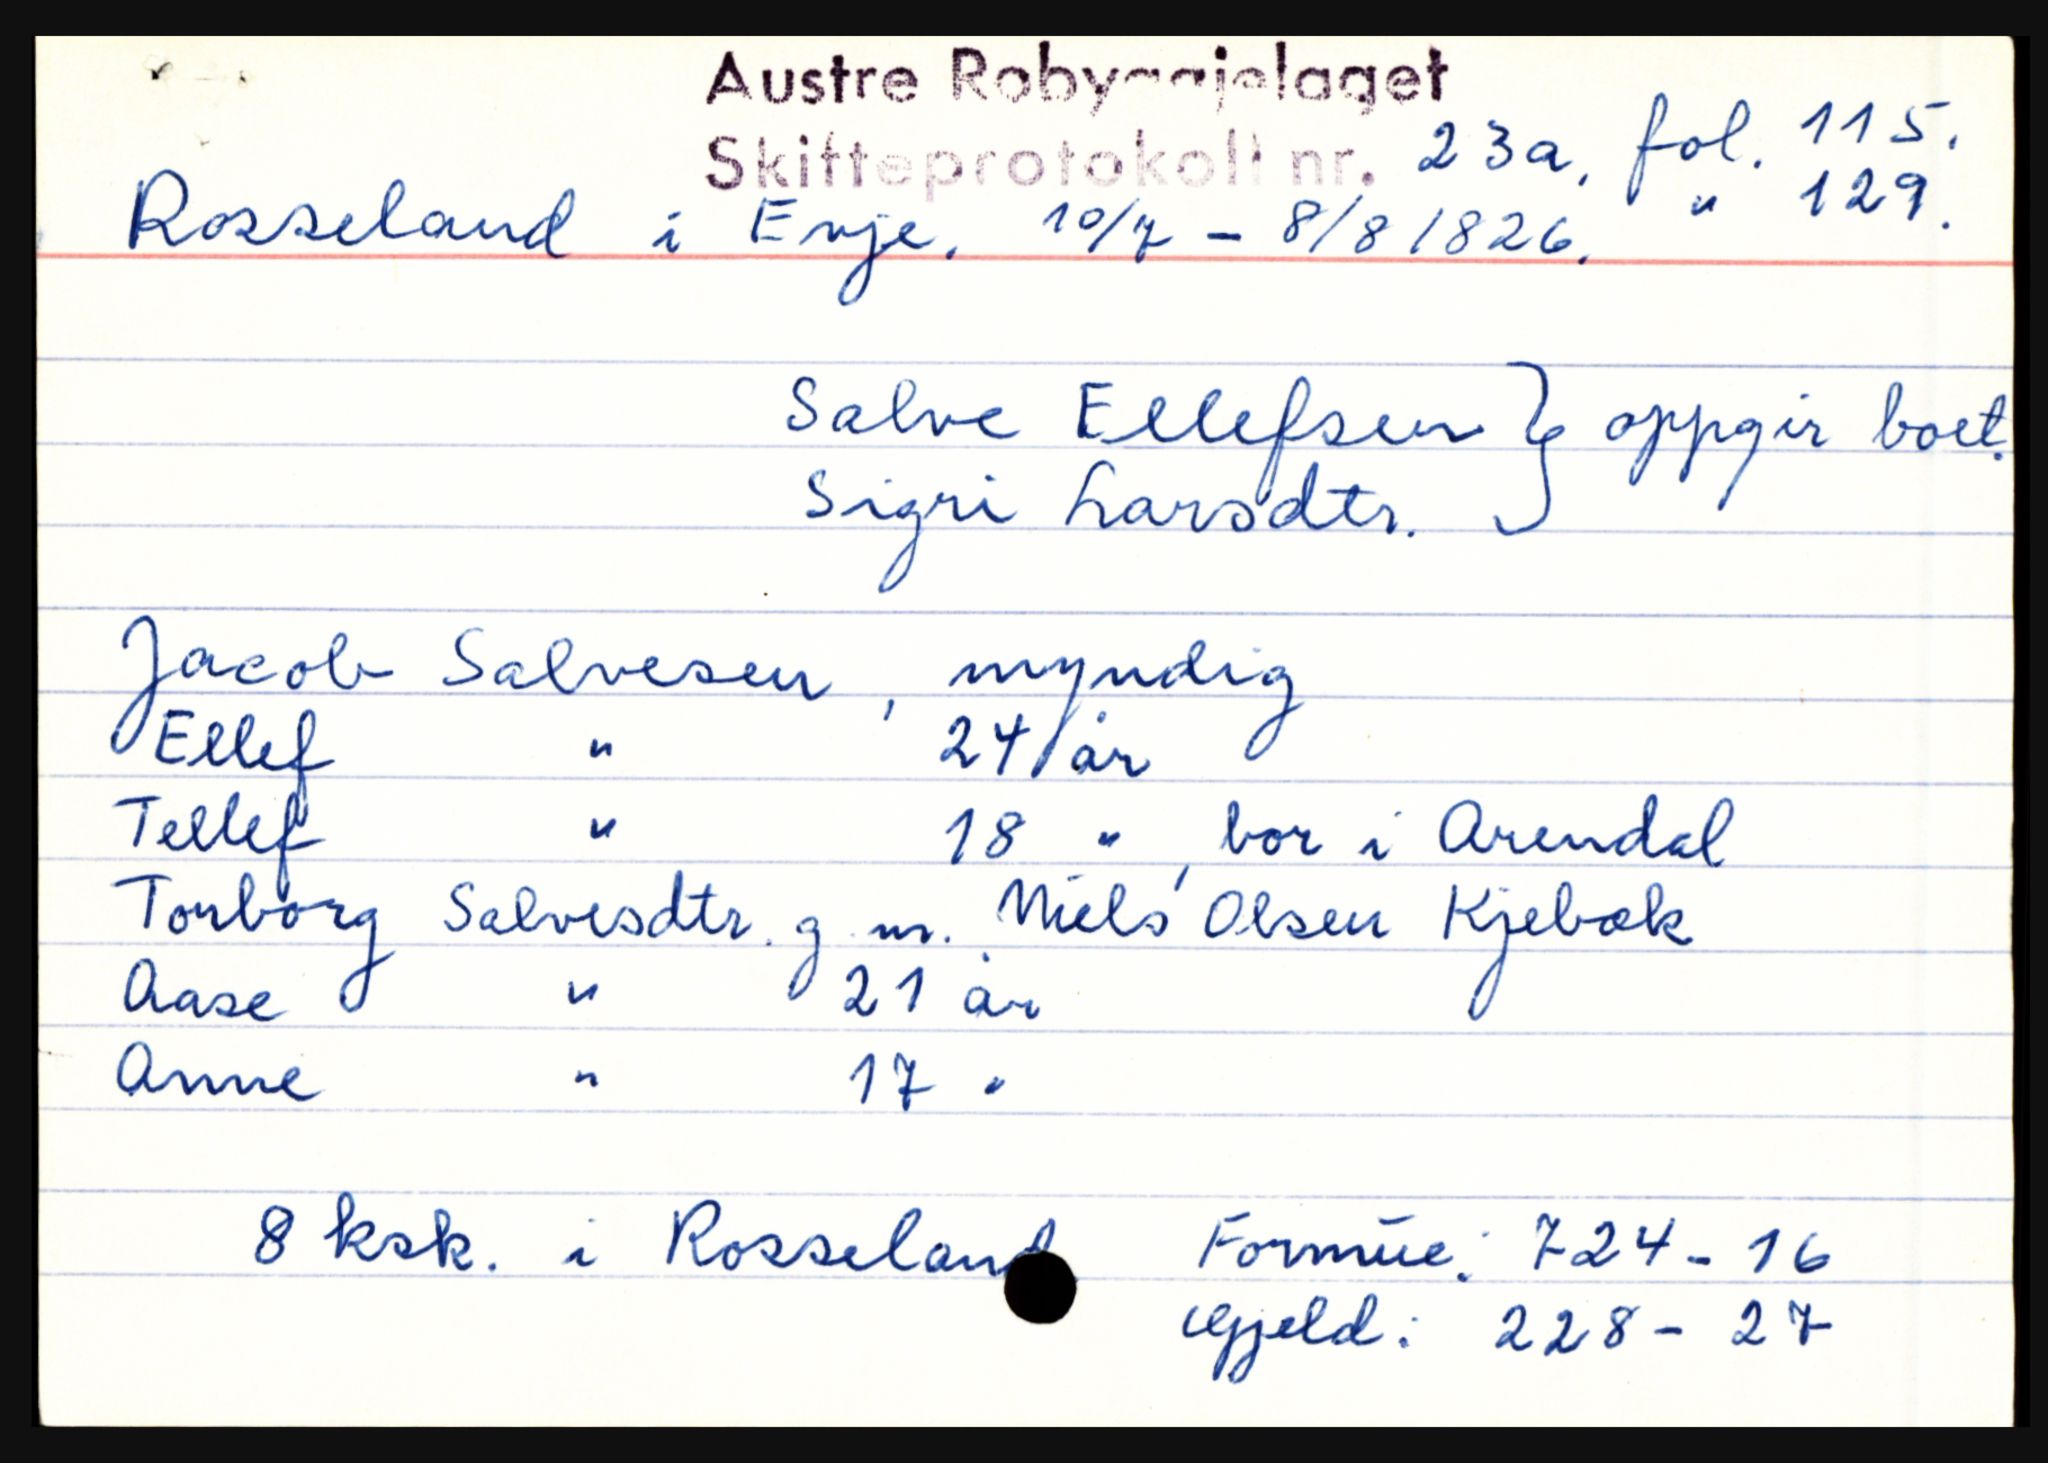 Austre Robyggjelaget
Skifteprotokoll nr. 23a, fol. 115.
Rosseland i Evje. 10/7 - 8/8 1826. " 129.
Salve Ellefsen } oppgir boet.
Sigri Larsdtr.
Jacob Salvesen, myndig
Ellef " 24 år
Tellef " 18 ", bor i Arendal
Torborg Salvesdtr. g. m. Niels Olsen Kjebæk
Aase " 21 år
Anne " 17 "
8 ksk. i Rosseland. Formue: 724 - 16
Gjeld: 228 - 27